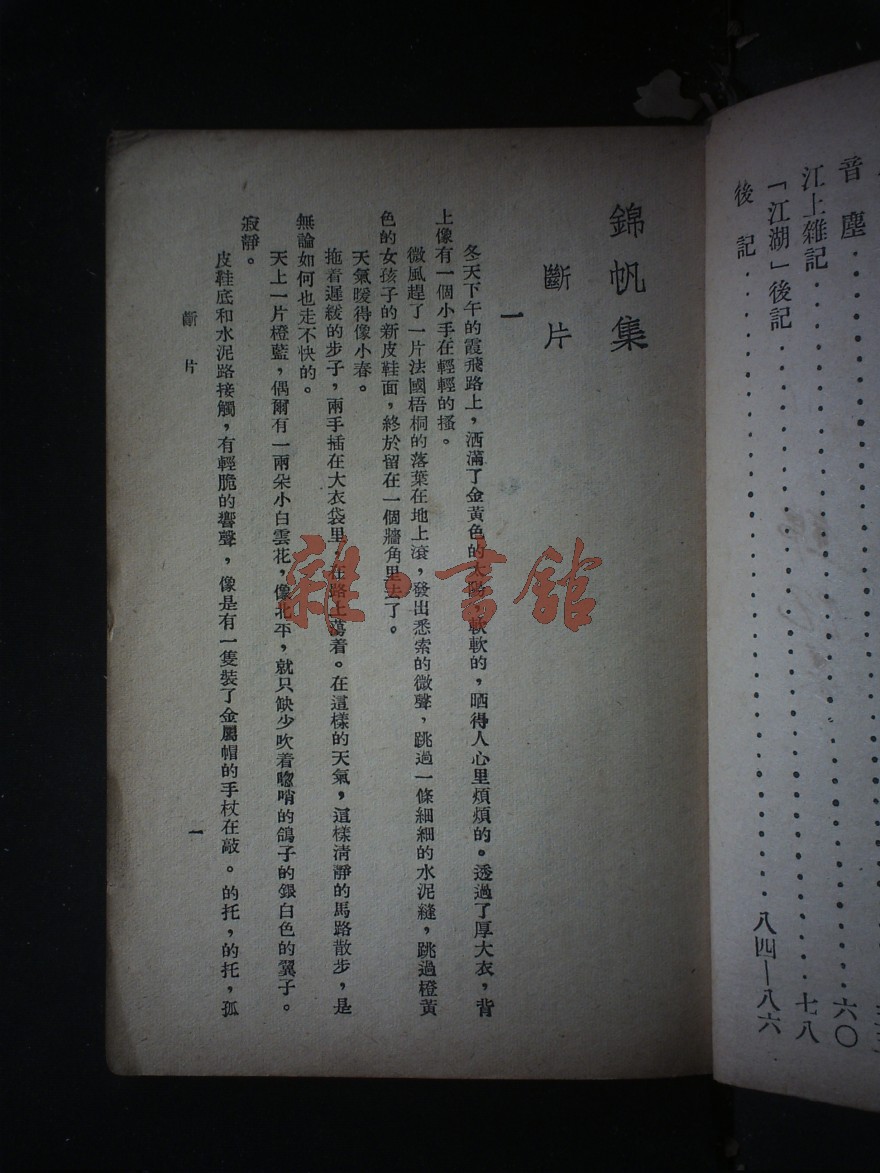 音塵 六〇
江上雜記 七八
「江湖」後記
後記 八四—八六
錦帆集
斷片
一
冬天下午的霞飛路上，洒滿了金黃色的太陽，軟軟的，晒得人心里煩煩的。透過了厚大衣，背
上像有一個小手在輕輕的搔。
微風趕了一片法國梧桐的落葉在地上滾，發出悉索的微聲，跳過一條細細的水泥縫，跳過橙黃
色的女孩子的新皮鞋面，終於留在一個牆角里去了。
天氣暖得像小春。
拖着遲緩的步子，兩手插在大衣袋里，在路上蕩着。在這樣的天氣，這樣清靜的馬路散步，是
無論如何也走不快的。
天上一片橙藍，偶爾有一兩朵小白雲花，像北平，就只缺少吹着唿哨的鴿子的銀白色的翼子。
皮鞋底和水泥路接觸，有輕脆的響聲，像是有一隻裝了金屬帽的手杖在敲。的托，的托，孤
寂靜。
斷片
一
雜·書館